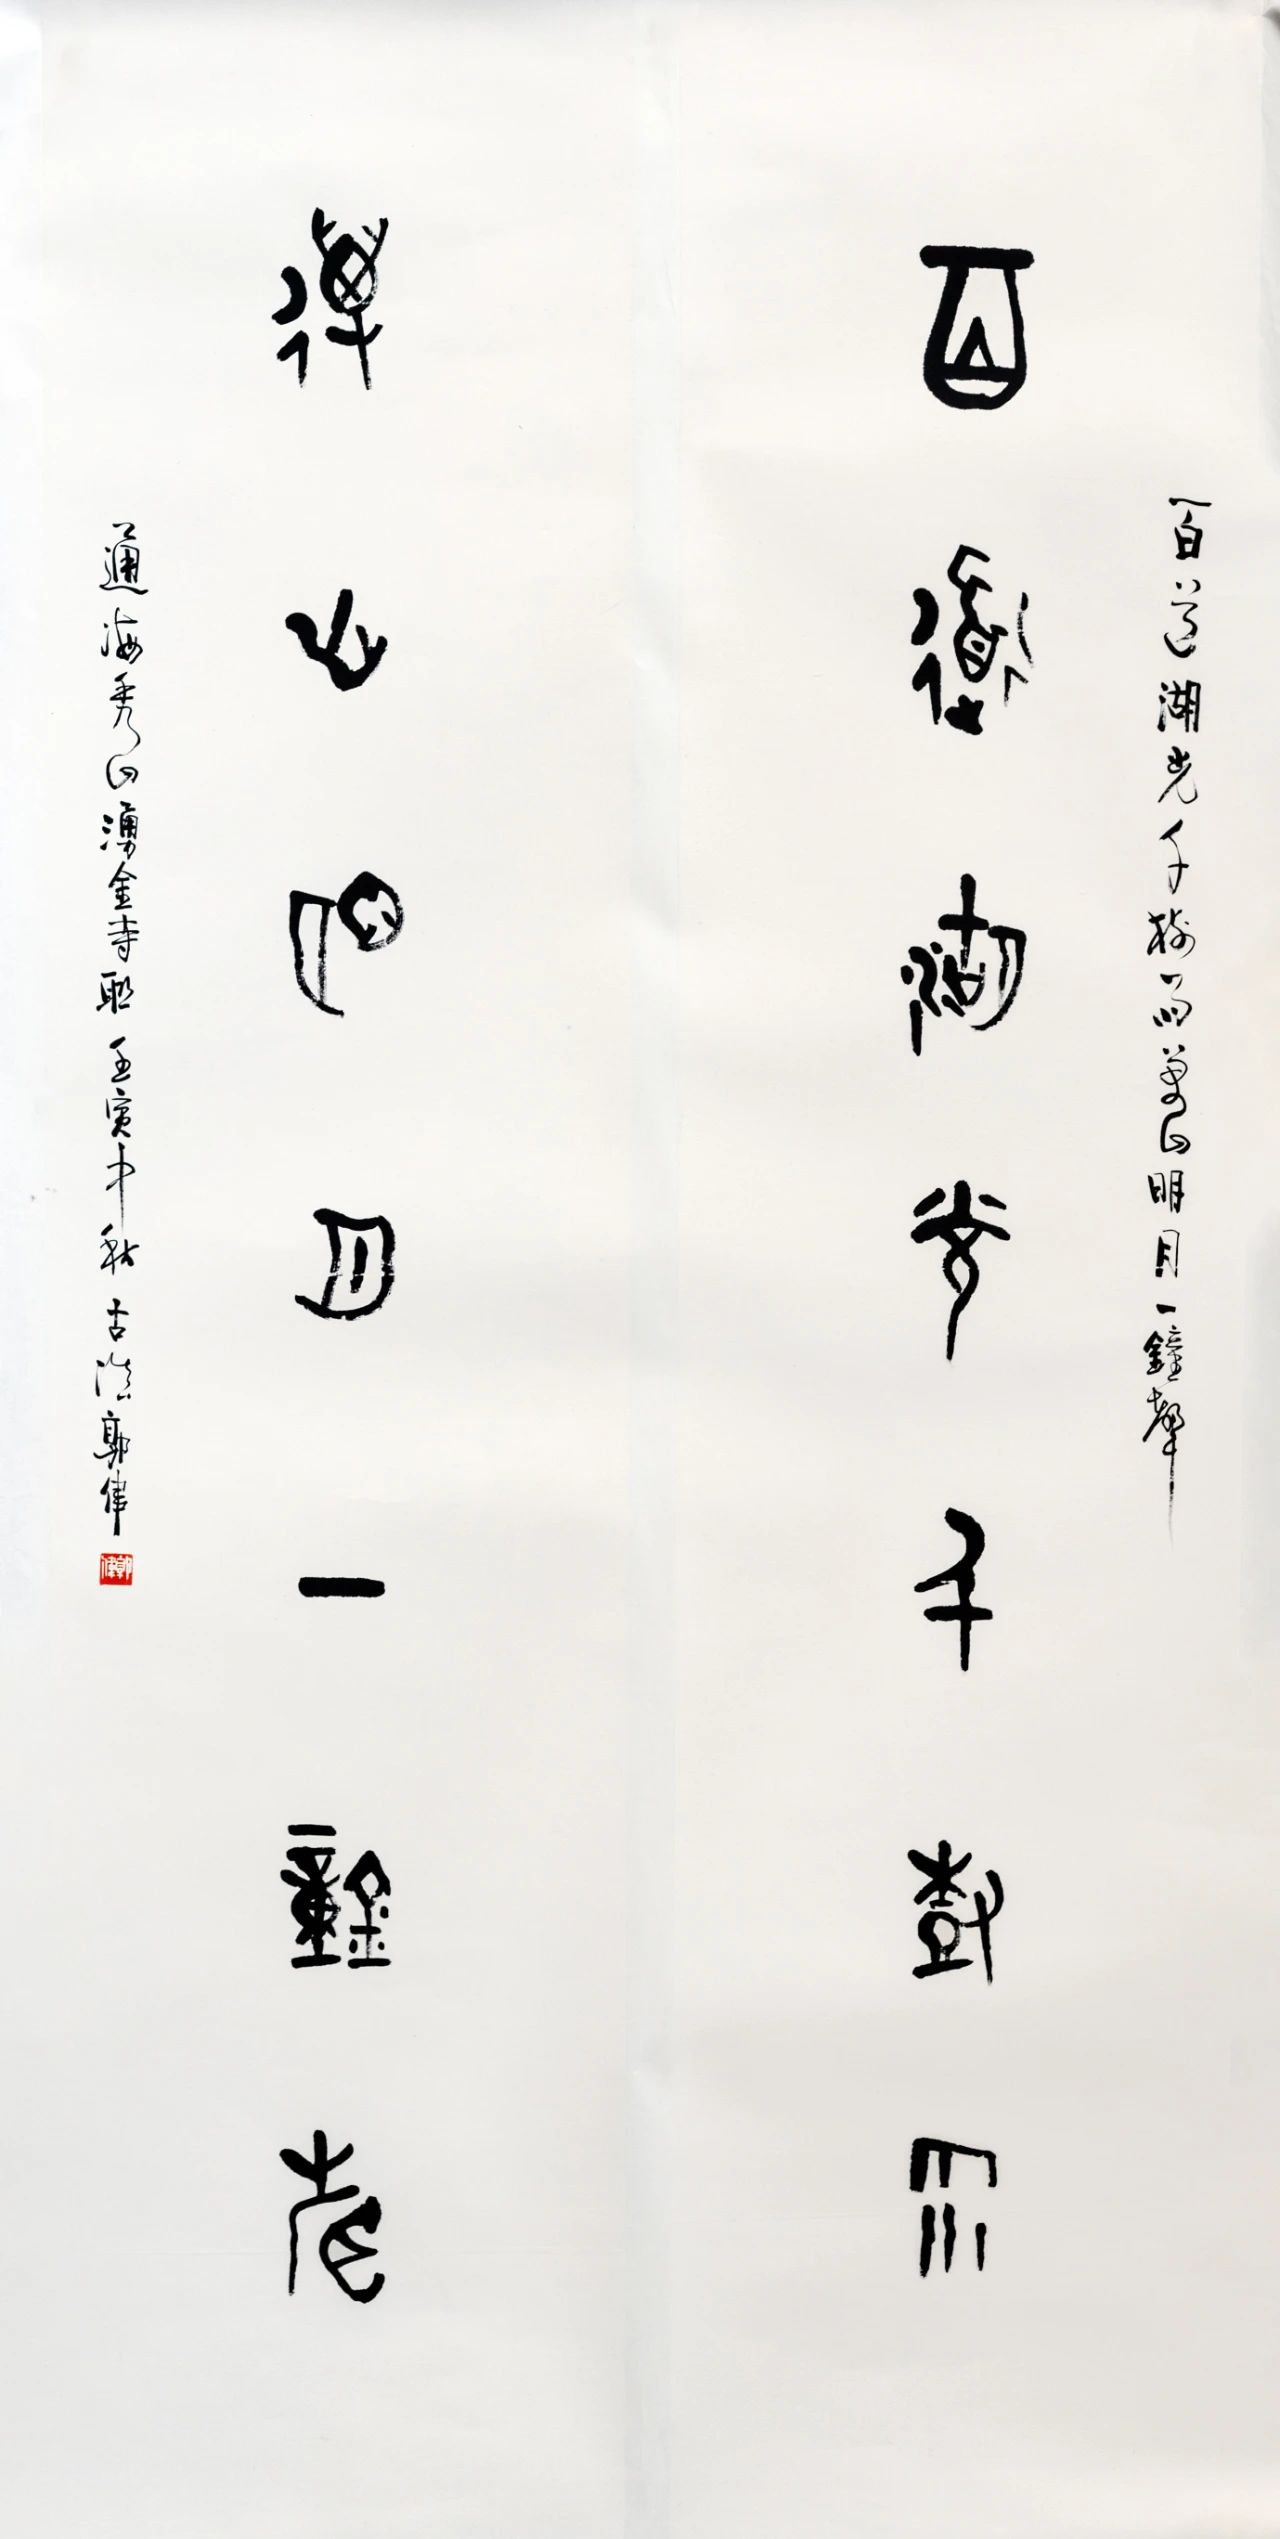 百道湖光千樹雨萬山明月一鐘聲
百道湖光千樹雨
萬山明月一鐘聲
通海秀山湧金寺聯 壬寅中秋 古滇郭偉
郭偉